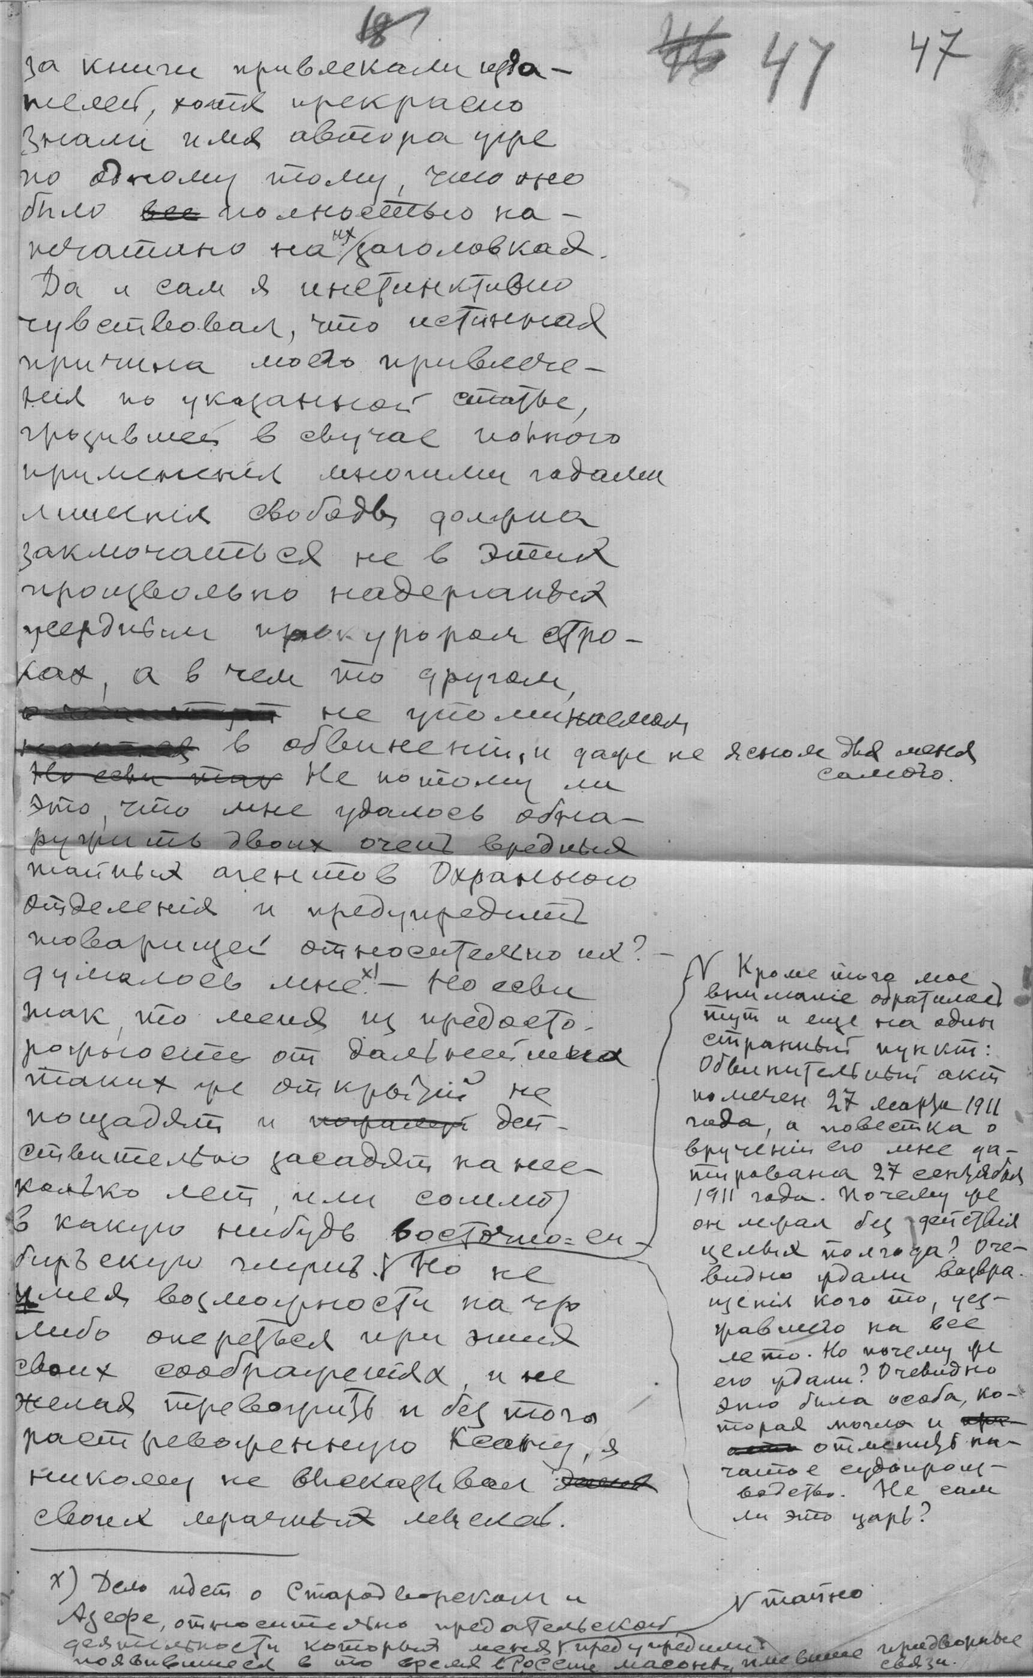 18
46 47
47
за книги привлекали изда-
телей, хотя прекрасно
знали имя автора уже
по одному тому, что оно
было все полностью на-
печатано на их заголовках.
Да и сам я инстинктивно
чувствовал, что истинная
причина моего привлече-
нія по указанной статье,
грозившей в случае полного
примененія многими годами
лишенія свободы должна
заключаться не в этих
произвольно надерганных
усердным прокурором стро-
ках, а в чем то другом,
не упоминаемом
в обвиненіи, и даже не ясном для меня
самого.
Но если так Не потому ли
это, что мне удалось обна-
ружить двоих очень вредных
тайных агентов Охранного
отделенія и предупредить
товарищей относительно их? –
думалось мне х) – Но если
так, то меня из предосто-
рожности от дальнейших
таких же открытій не
пощадят и дей-
ствительно засадят на нес-
колько лет, или сошлют
в какую нибудь восточно-си-
бирскую глушь. V Но не
имея возможности на что
либо опереться при этих
своих соображеніях, и не
желая тревожить и без того
растревоженную Ксану, я
никому не высказывал
своих мрачных мыслей.
V Кроме того мое
вниманіе обратилось
тут и еще на один
странный пункт:
Обвинительный акт
помечен 27 марта 1911
года, а повестка о
врученіи его мне да-
тирована 27 сентября
1911 года. Почему же
он лежал без действія
целых полгода? Оче-
видно ждали возвра-
щенія кого то, уез-
жавшего на все
лето. Но почему же
его ждали? Очевидно
это была особа, ко-
торая могла и
отменить на-
чатое судопроиз-
водство. Не сам
ли это царь?
х) Дело идет о Стародворском и
Азефе, относительно предательской
деятельности которых меня V предупредили
появившиеся в то время в Россіи масоны, имевшие придворные
связи.
V тайно